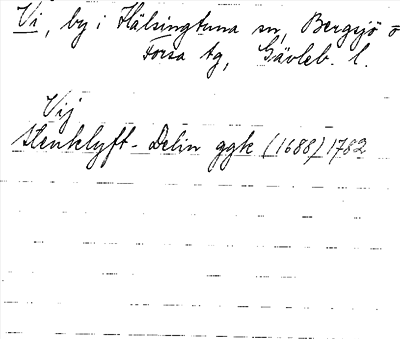 Vi, by i Hälsingtuna sn, Bergsjö o
Forsa tg, Gävleb. l.
Vij
Stenklyft - Delin ggk (1688) 1782